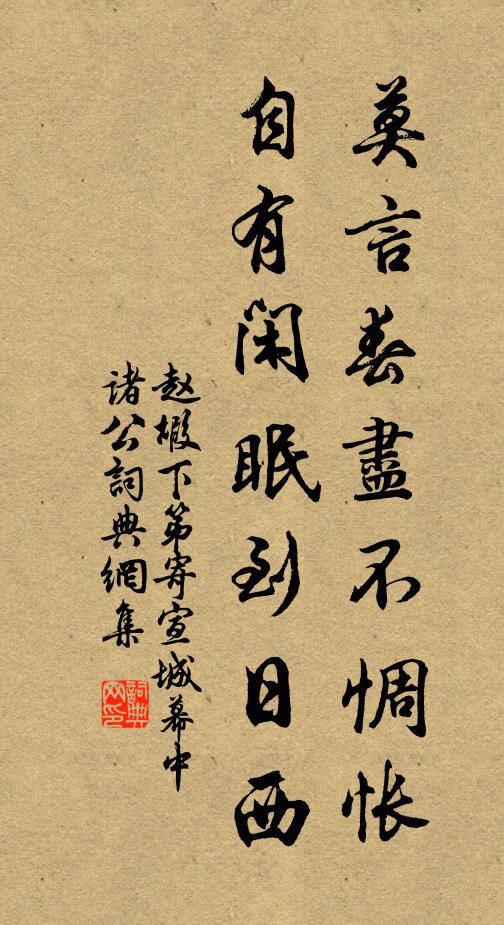 莫言春盡不惆怅
自有閑眠到日西
赵嘏下第寄宣城幕中
诸公詞典網集
詞典网印